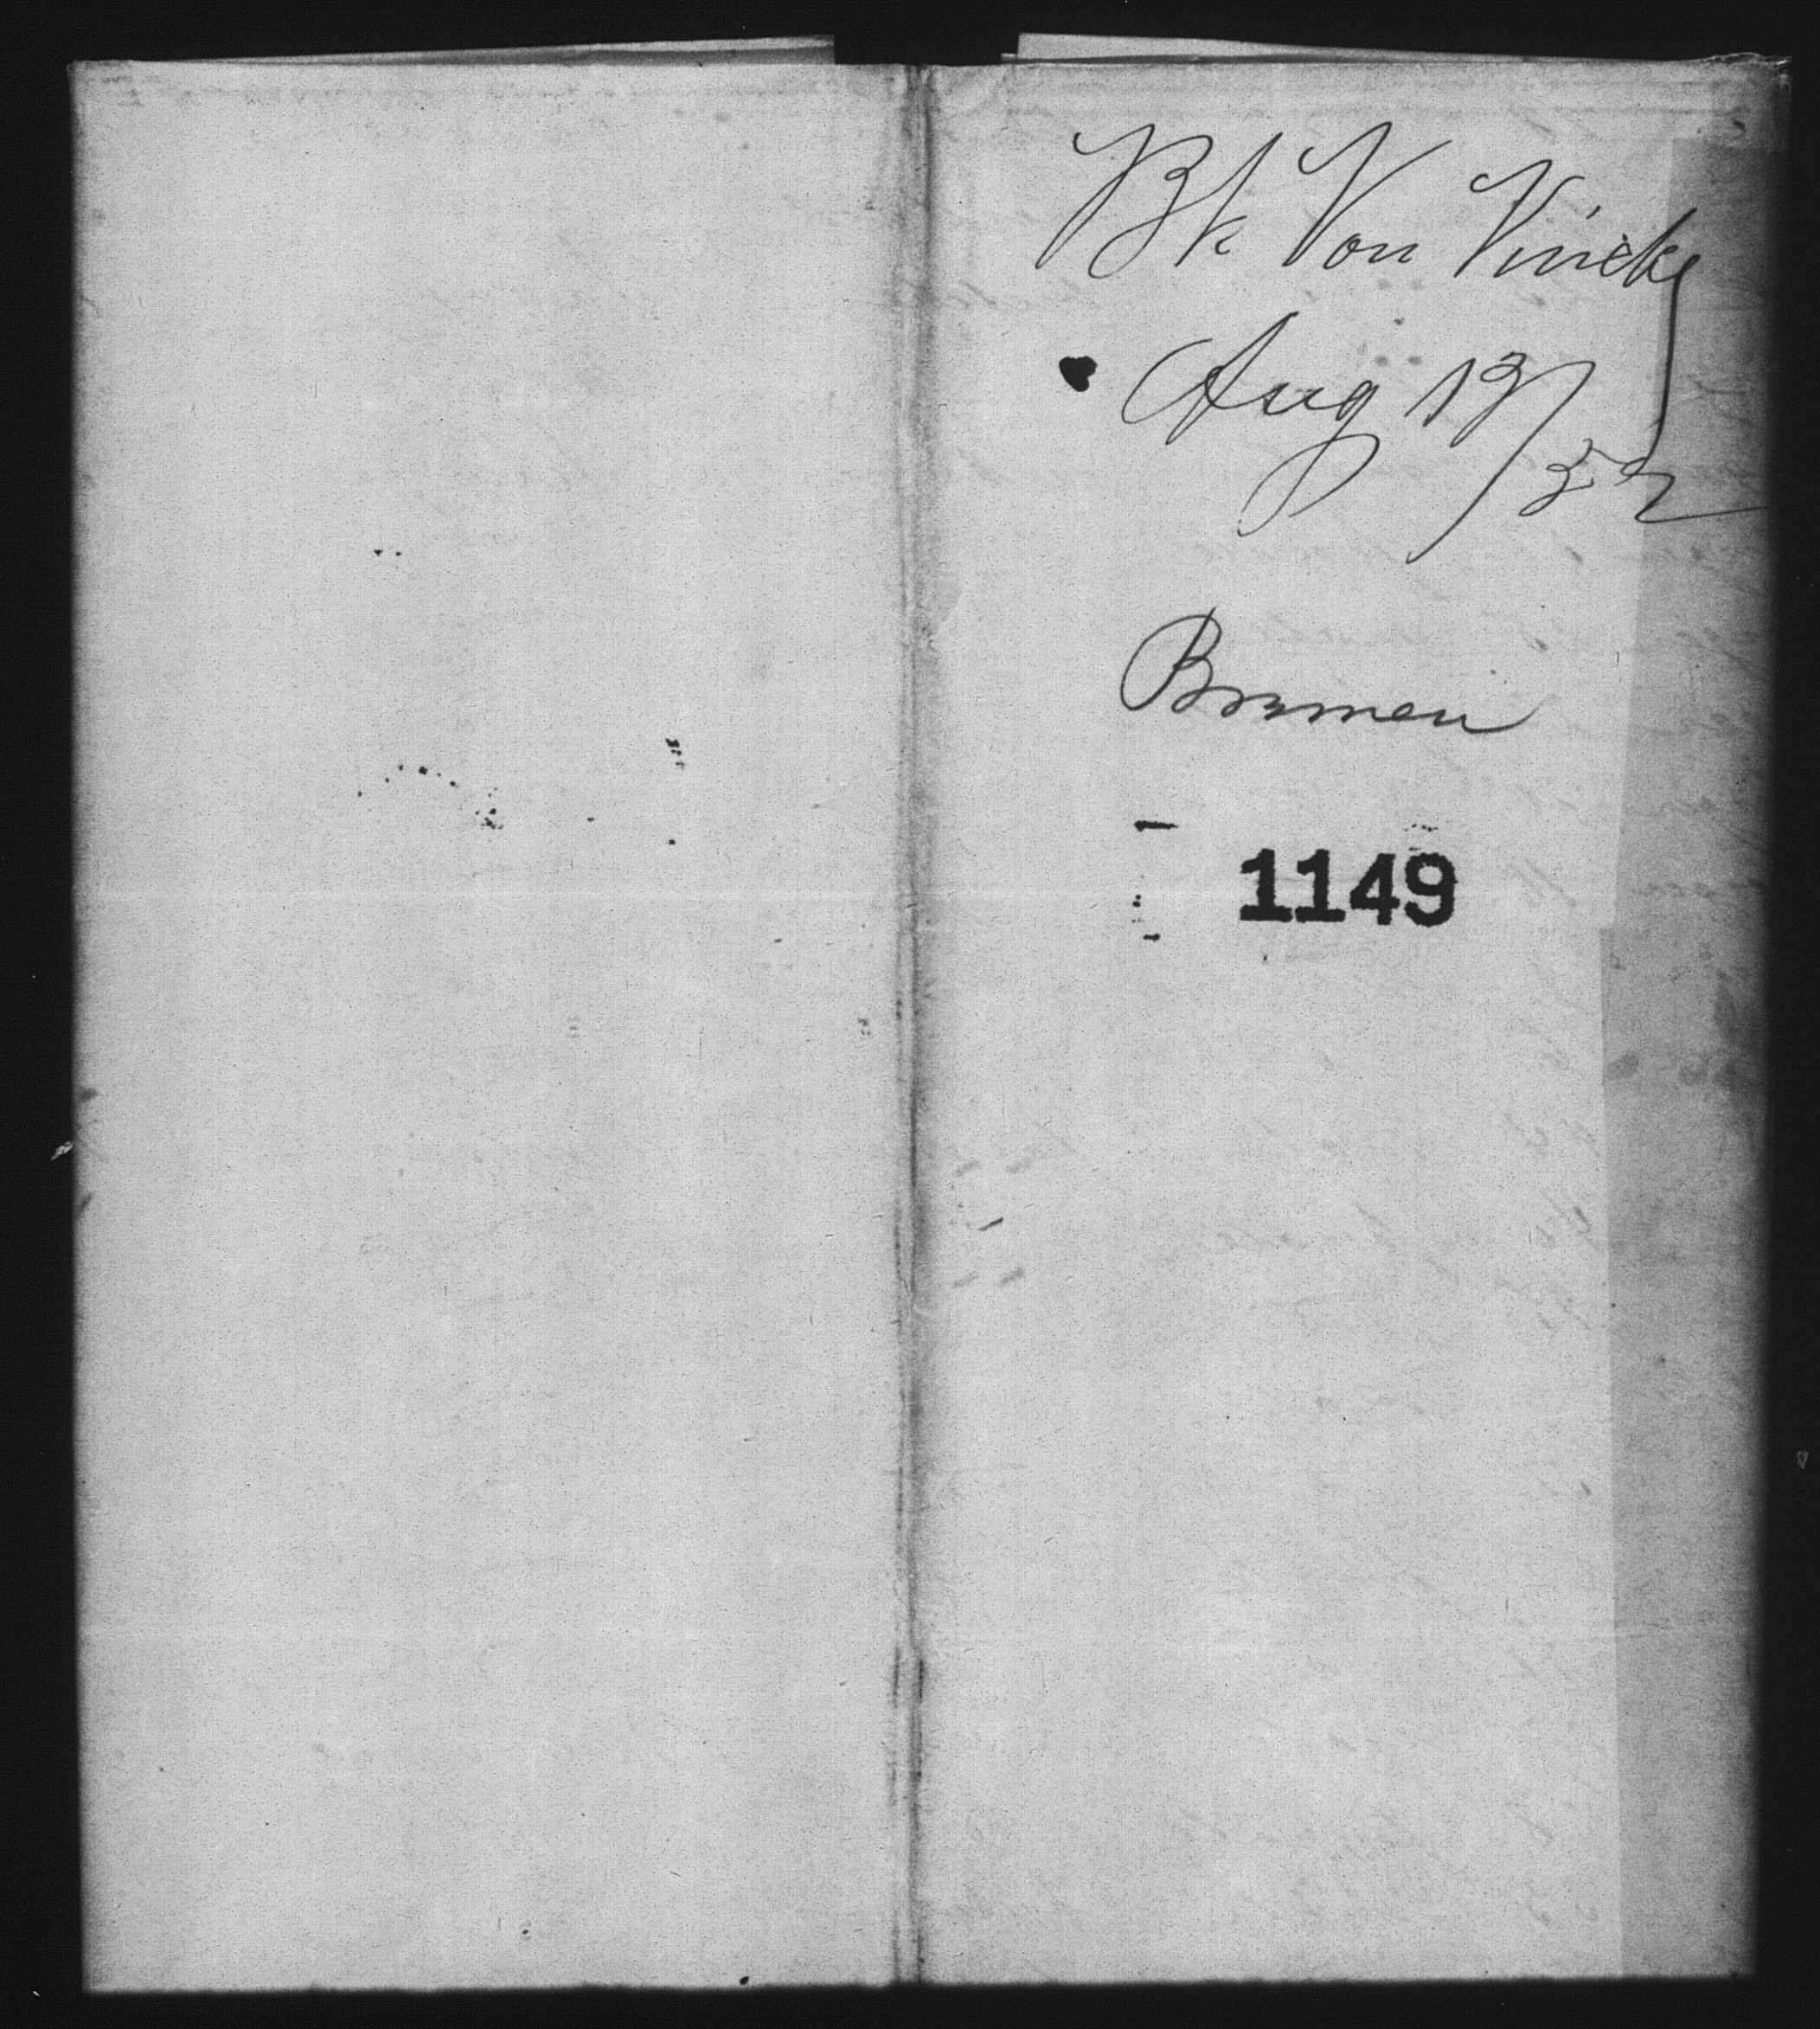 Bk Von Vincke
Aug 13/52
Bremen
1149